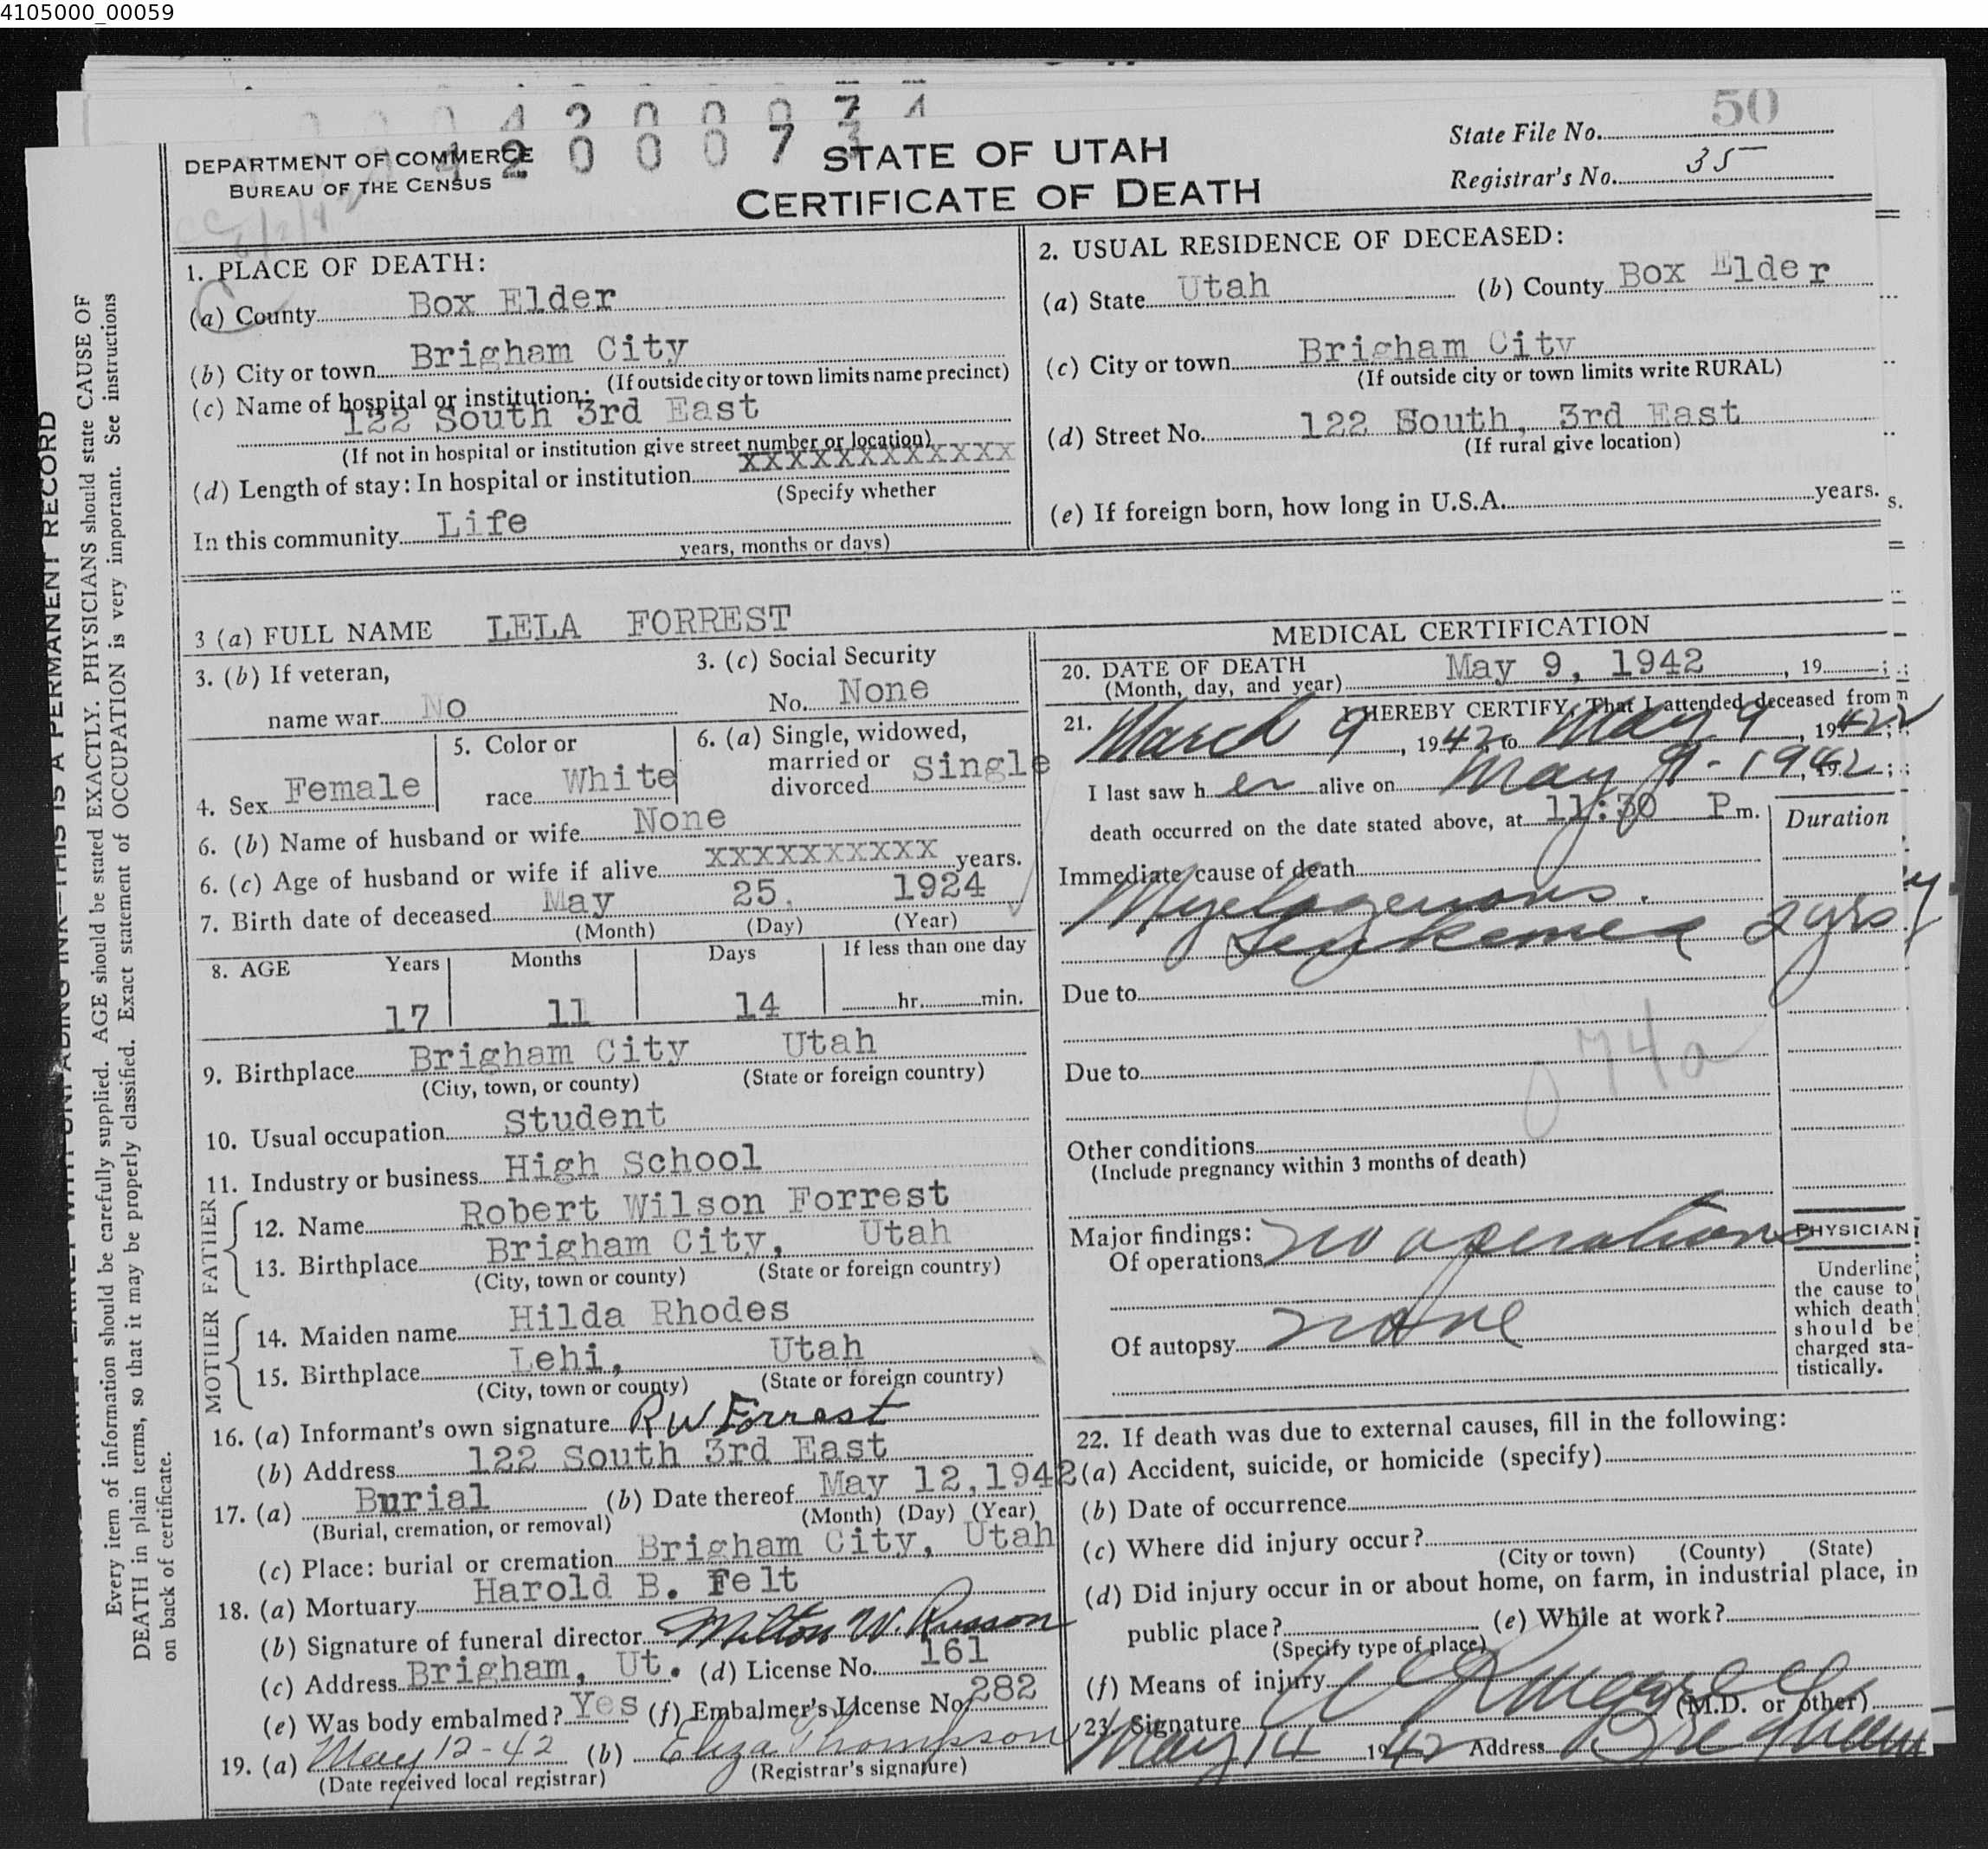 4105000_00059
4 2 0 0 0 7 4
4 2 0 0 0 7 3
50
State File No.
DEPARTMENT OF COMMERCE
BUREAU OF THE CENSUS
STATE OF UTAH
CERTIFICATE OF DEATH
Registrar's No. 35
6/2/42
1. PLACE OF DEATH:
(a) County Box Elder
(b) City or town Brigham City
(If outside city or town limits name precinct)
(c) Name of hospital or institution:
122 South 3rd East
(If not in hospital or institution give street number or location)
(d) Length of stay: In hospital or institution XXXXXXXXXXXX
(Specify whether
In this community Life
years, months or days)
2. USUAL RESIDENCE OF DECEASED:
(a) State Utah (b) County Box Elder
(c) City or town Brigham City
(If outside city or town limits write RURAL)
(d) Street No. 122 South, 3rd East
(If rural give location)
(e) If foreign born, how long in U.S.A. years.
3 (a) FULL NAME LELA FORREST
3. (b) If veteran,
name war No
3. (c) Social Security
No. None
4. Sex Female
5. Color or
race White
6. (a) Single, widowed,
married or
divorced Single
6. (b) Name of husband or wife None
6. (c) Age of husband or wife if alive XXXXXXXXXX years.
7. Birth date of deceased May 25, 1924
(Month) (Day) (Year)
8. AGE Years Months Days If less than one day
17 11 14 hr. min.
9. Birthplace Brigham City Utah
(City, town, or county) (State or foreign country)
10. Usual occupation Student
11. Industry or business High School
FATHER
12. Name Robert Wilson Forrest
13. Birthplace Brigham City, Utah
(City, town or county) (State or foreign country)
MOTHER
14. Maiden name Hilda Rhodes
15. Birthplace Lehi, Utah
(City, town or county) (State or foreign country)
16. (a) Informant's own signature R W Forrest
(b) Address 122 South 3rd East
17. (a) Burial (b) Date thereof May 12, 1942
(Burial, cremation, or removal) (Month) (Day) (Year)
(c) Place: burial or cremation Brigham City, Utah
18. (a) Mortuary Harold B. Felt
(b) Signature of funeral director Milton W. Russon
(c) Address Brigham, Ut. (d) License No. 161
(e) Was body embalmed? Yes (f) Embalmer's License No. 282
19. (a) May 12-42 (b) Eliza Thompson
(Date received local registrar) (Registrar's signature)
MEDICAL CERTIFICATION
20. DATE OF DEATH
(Month, day, and year) May 9, 1942, 19 ;
21. I HEREBY CERTIFY, That I attended deceased from
March 9, 1942 to May 9, 1942;
I last saw her alive on May 9 - 1942, 19 ;
death occurred on the date stated above, at 11:30 P m.
Duration
Immediate cause of death
Myelogenous
Leukemea 2 yrs
Due to
074a
Due to
Other conditions
(Include pregnancy within 3 months of death)
Major findings:
Of operations no operations
Of autopsy none
PHYSICIAN
Underline
the cause to
which death
should be
charged sta-
tistically.
22. If death was due to external causes, fill in the following:
(a) Accident, suicide, or homicide (specify)
(b) Date of occurrence
(c) Where did injury occur?
(City or town) (County) (State)
(d) Did injury occur in or about home, on farm, in industrial place, in
public place? (e) While at work?
(Specify type of place)
(f) Means of injury
23. Signature (M.D. or other)
May 14 1942 Address Brigham
WITH UNFADING INK—THIS IS A PERMANENT RECORD
Every item of information should be carefully supplied. AGE should be stated EXACTLY. PHYSICIANS should state CAUSE OF
DEATH in plain terms, so that it may be properly classified. Exact statement of OCCUPATION is very important. See instructions
on back of certificate.